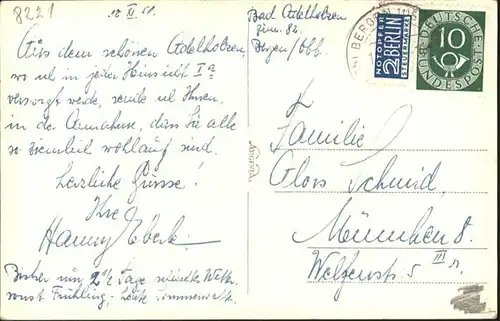 8221
12. XI. 51.
Bad Adelholzen
Zim. 82
Bergen/Obb.
Aus dem schönen Adelholzen,
wo ich in jeder Hinsicht Ia
versorgt werde, sende ich Ihnen,
in der Annahme, dass Sie alle
so ziemlich wohlauf sind.
Herzliche Grüsse!
Ihre
Hanny Eberle
Bisher nur 2 1/2 Tage schlechtes Wetter,
sonst Frühling, heute
BERGEN
NOTOPFER
2 BERLIN
STEUERMARKE
DEUTSCHE
BUNDESPOST
10
Familie
Alois Schmid,
München 8.
Welfenstr. 5 III r.